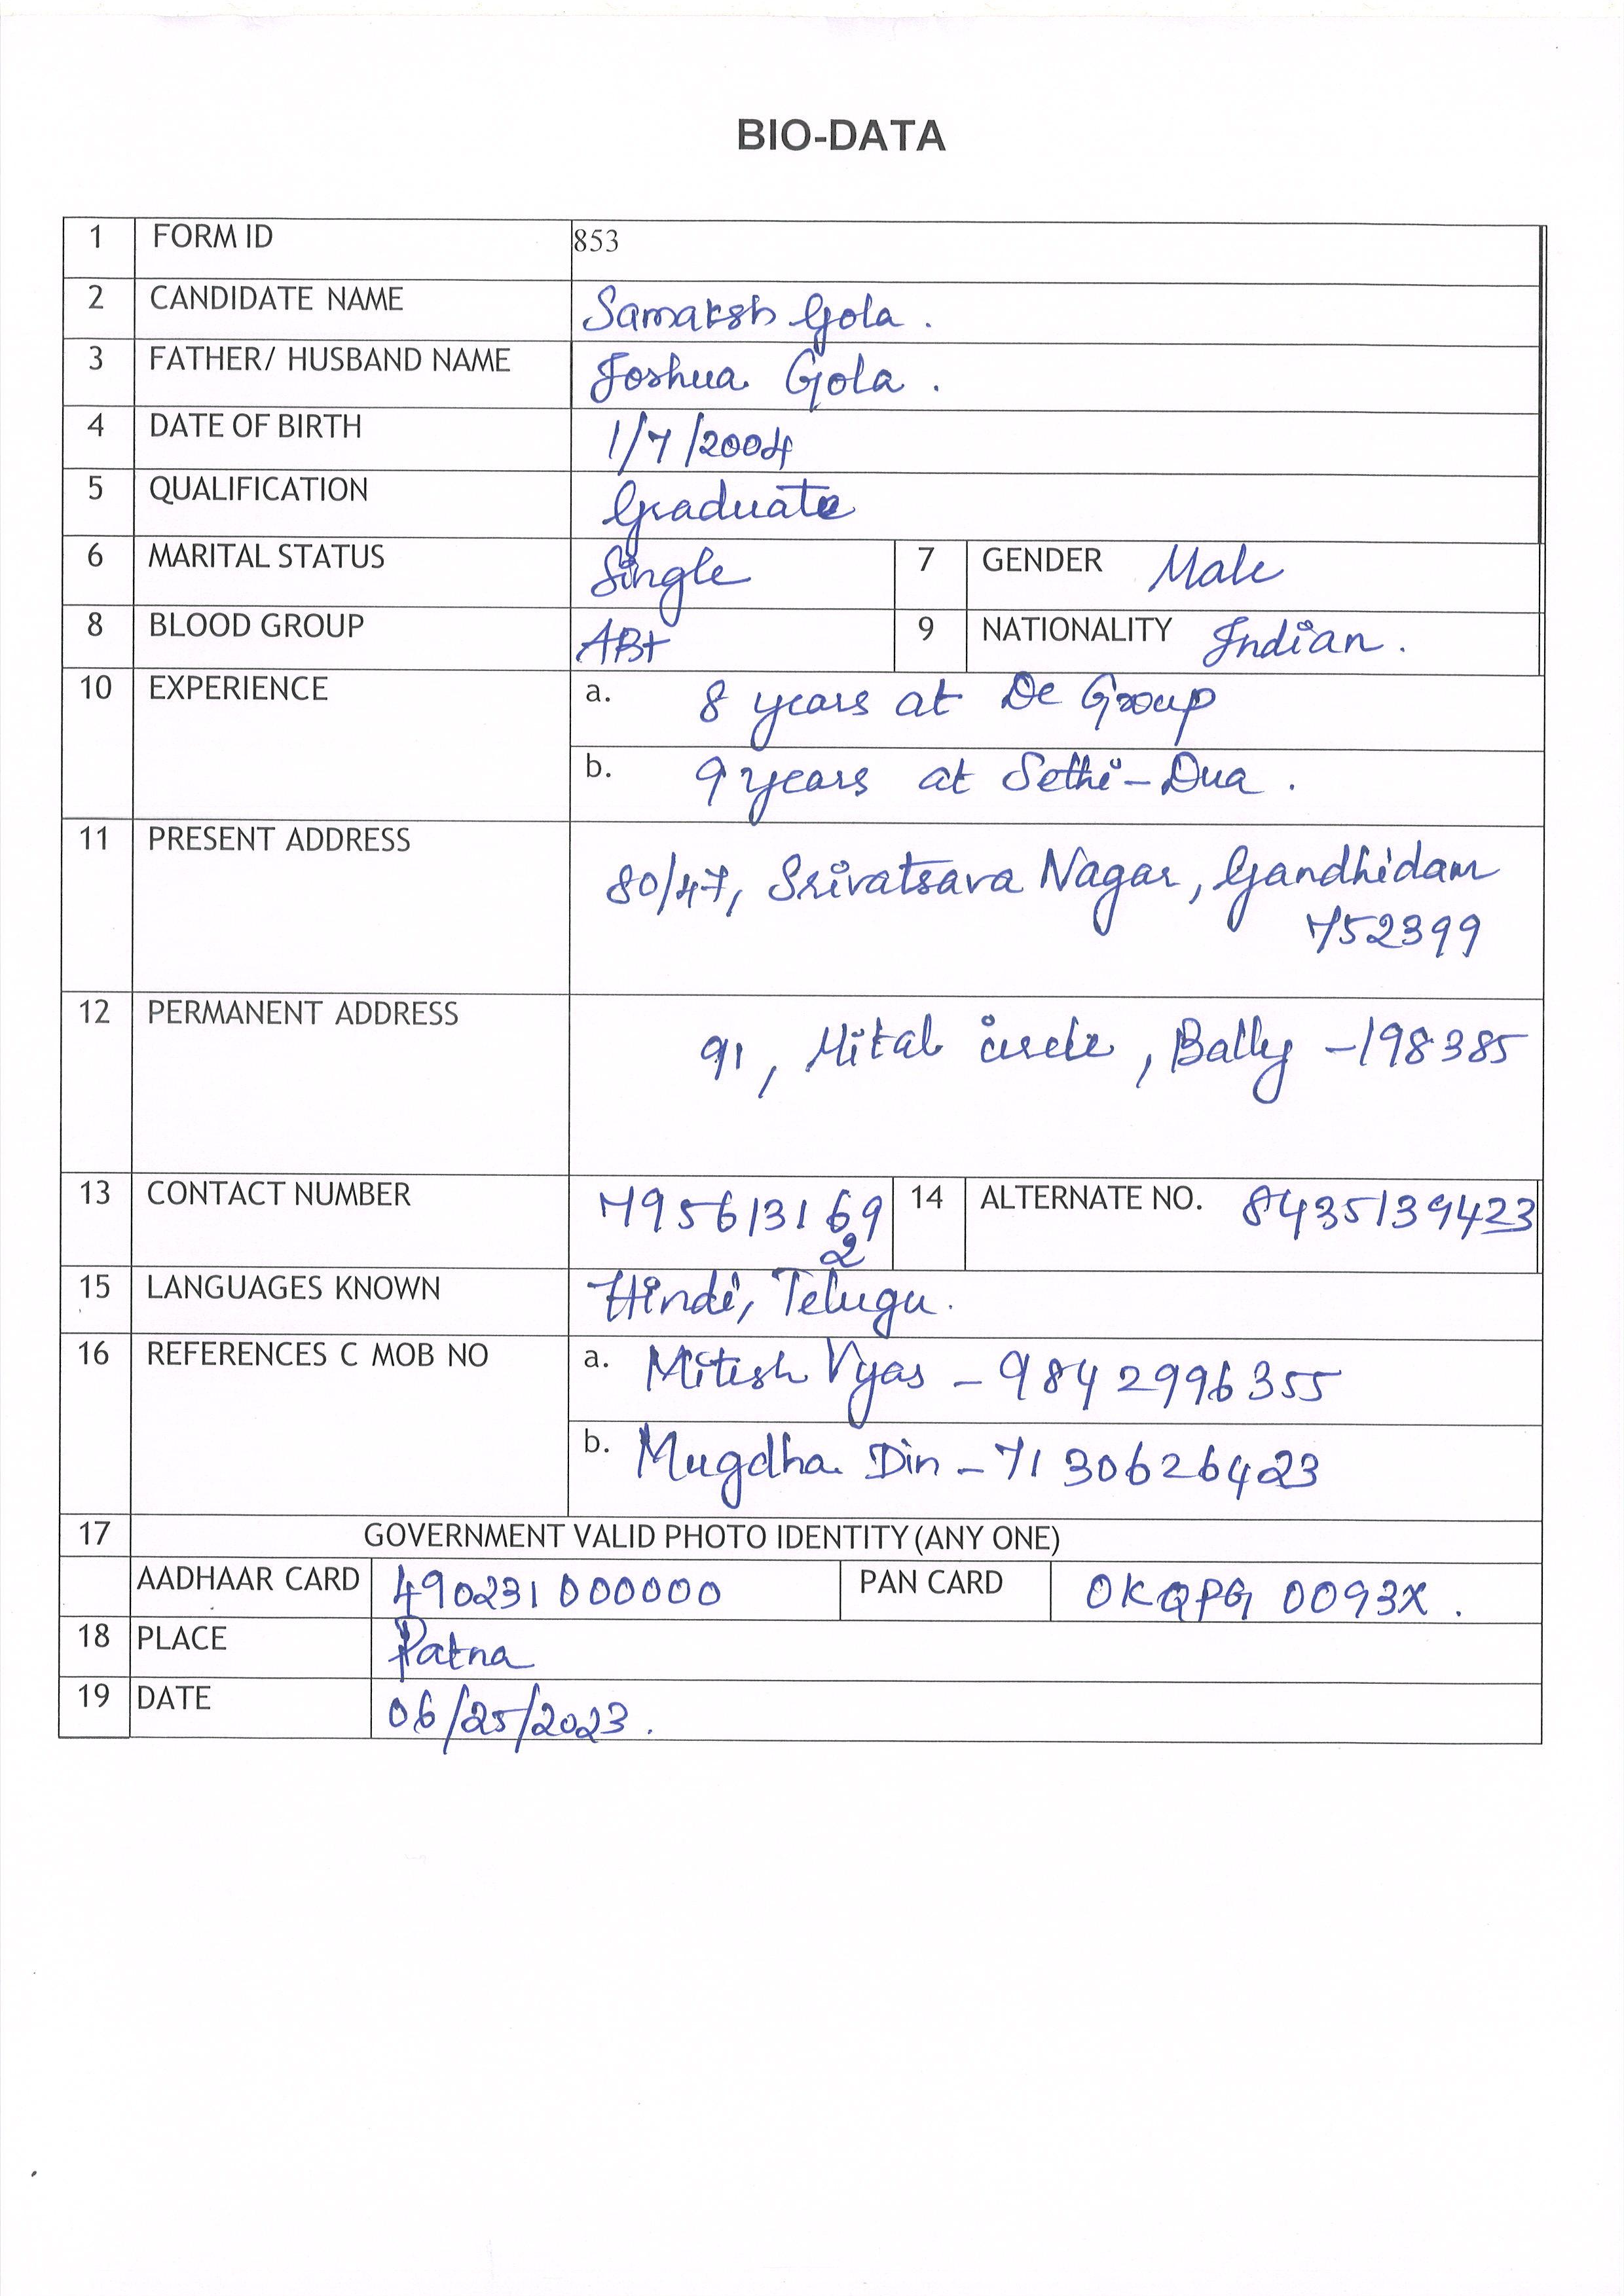 BIO-DATA
1 FORM ID 853
2 CANDIDATE NAME Samaksh Gola .
3 FATHER/ HUSBAND NAME Joshua Gola .
4 DATE OF BIRTH 1/7/2004
5 QUALIFICATION Graduate
6 MARITAL STATUS Single 7 GENDER Male
8 BLOOD GROUP AB+ 9 NATIONALITY Indian .
10 EXPERIENCE a. 8 years at De Group
b. 9 years at Sethi-Dua .
11 PRESENT ADDRESS 80/47, Srivatsava Nagar, Gandhidam
752399
12 PERMANENT ADDRESS 91, Mital circle, Bally -198385
13 CONTACT NUMBER 7956131669 14 ALTERNATE NO. 8435139423
2
15 LANGUAGES KNOWN Hindi, Telugu.
16 REFERENCES C MOB NO a. Mitesh Vyas - 9842996355
b. Mugdha Din - 7130626423
17 GOVERNMENT VALID PHOTO IDENTITY (ANY ONE)
AADHAAR CARD 490231000000 PAN CARD OKQPG 0093X .
18 PLACE Patna
19 DATE 06/25/2023 .